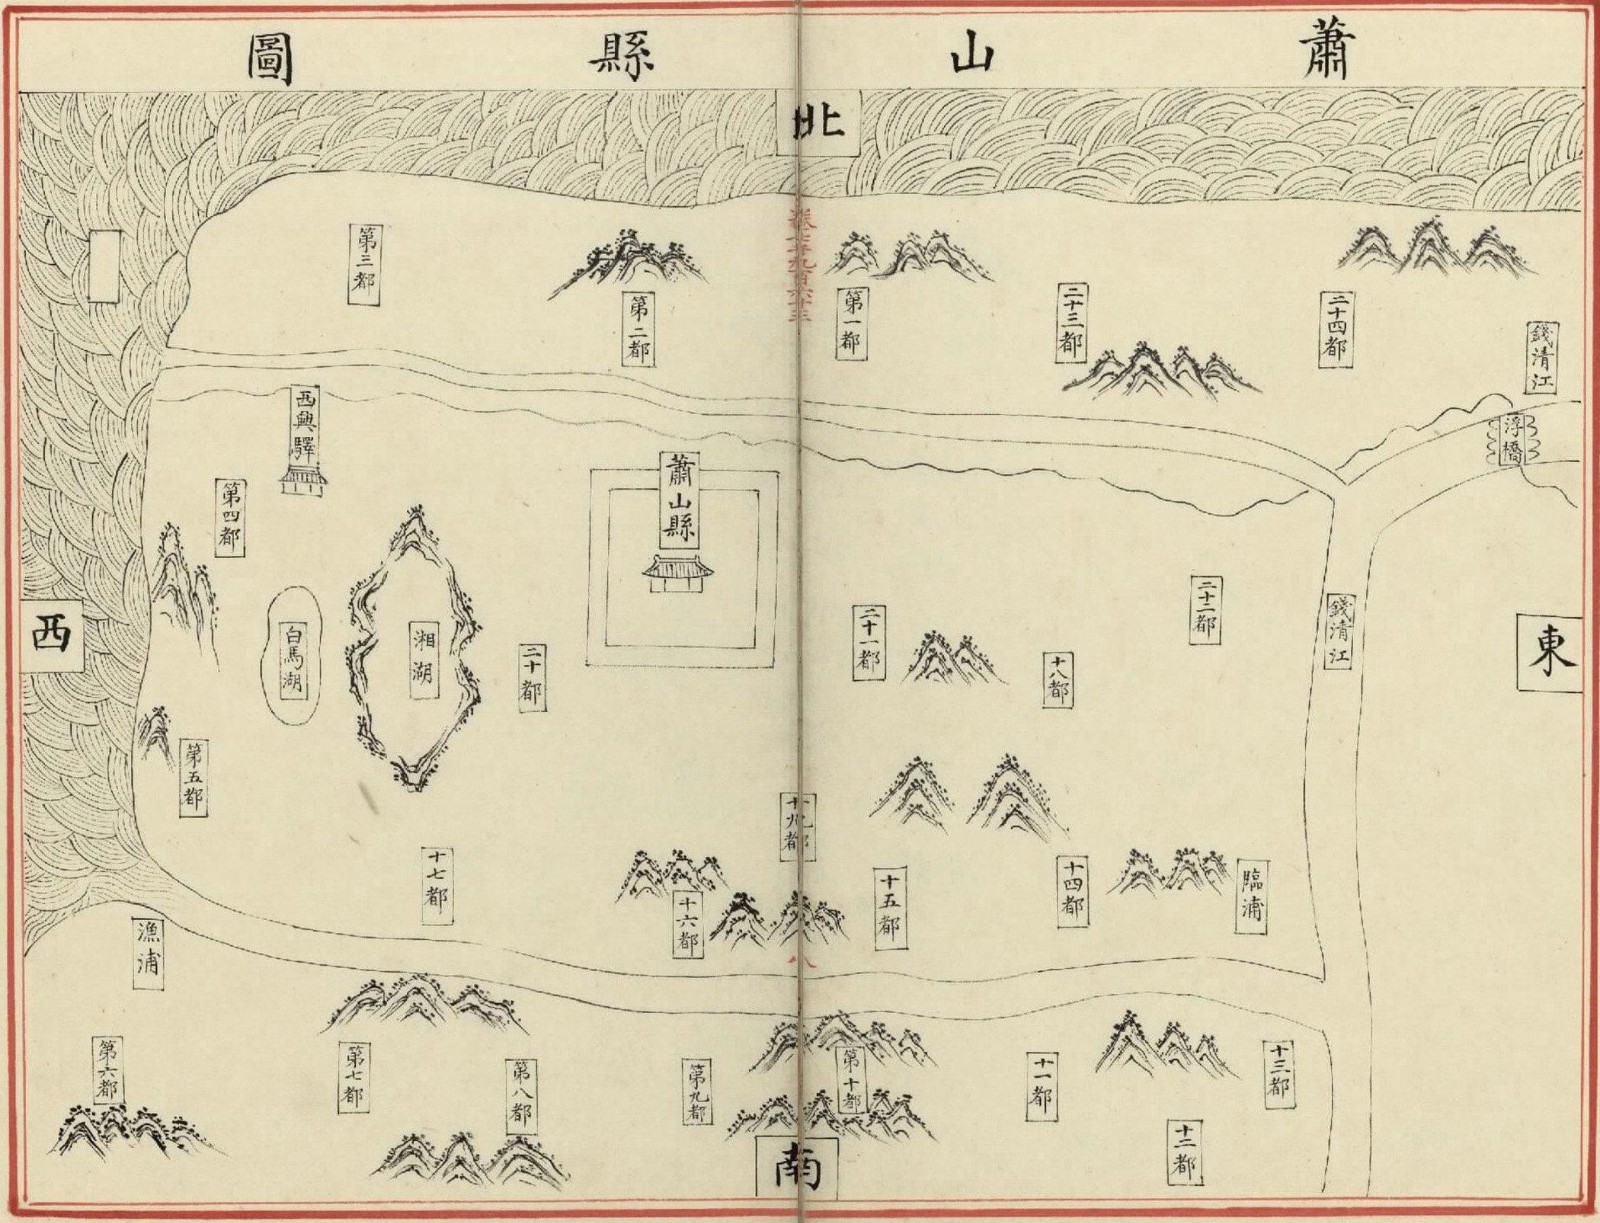 蕭山縣圖
北
東
南
西
卷七千九百六十三
八
錢清江
浮橋
二十四都
二十三都
第一都
第二都
第三都
西興驛
蕭山縣
第四都
白馬湖
湘湖
二十都
二十一都
二十二都
錢清江
十八都
第五都
十九都
十七都
十六都
十五都
十四都
臨浦
漁浦
第六都
第七都
第八都
第九都
第十都
十一都
十二都
十三都